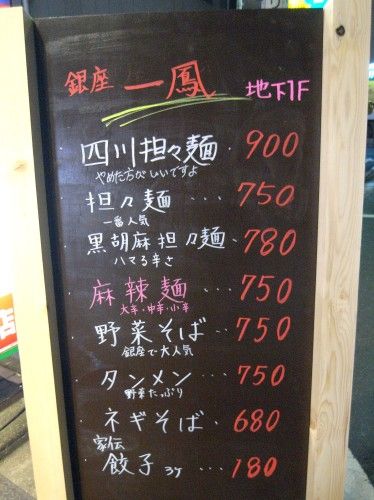 銀座 一鳳 地下1F
四川担々麺・900
やめた方がいいですよ
担々麺・・・750
一番人気
黒胡麻担々麺・780
ハマる辛さ
麻辣麺・・・750
大辛・中辛・小辛
野菜そば・・・750
銀座で大人気
タンメン・・・750
野菜たっぷり
ネギそば・680
家伝
餃子 3ヶ・・・180